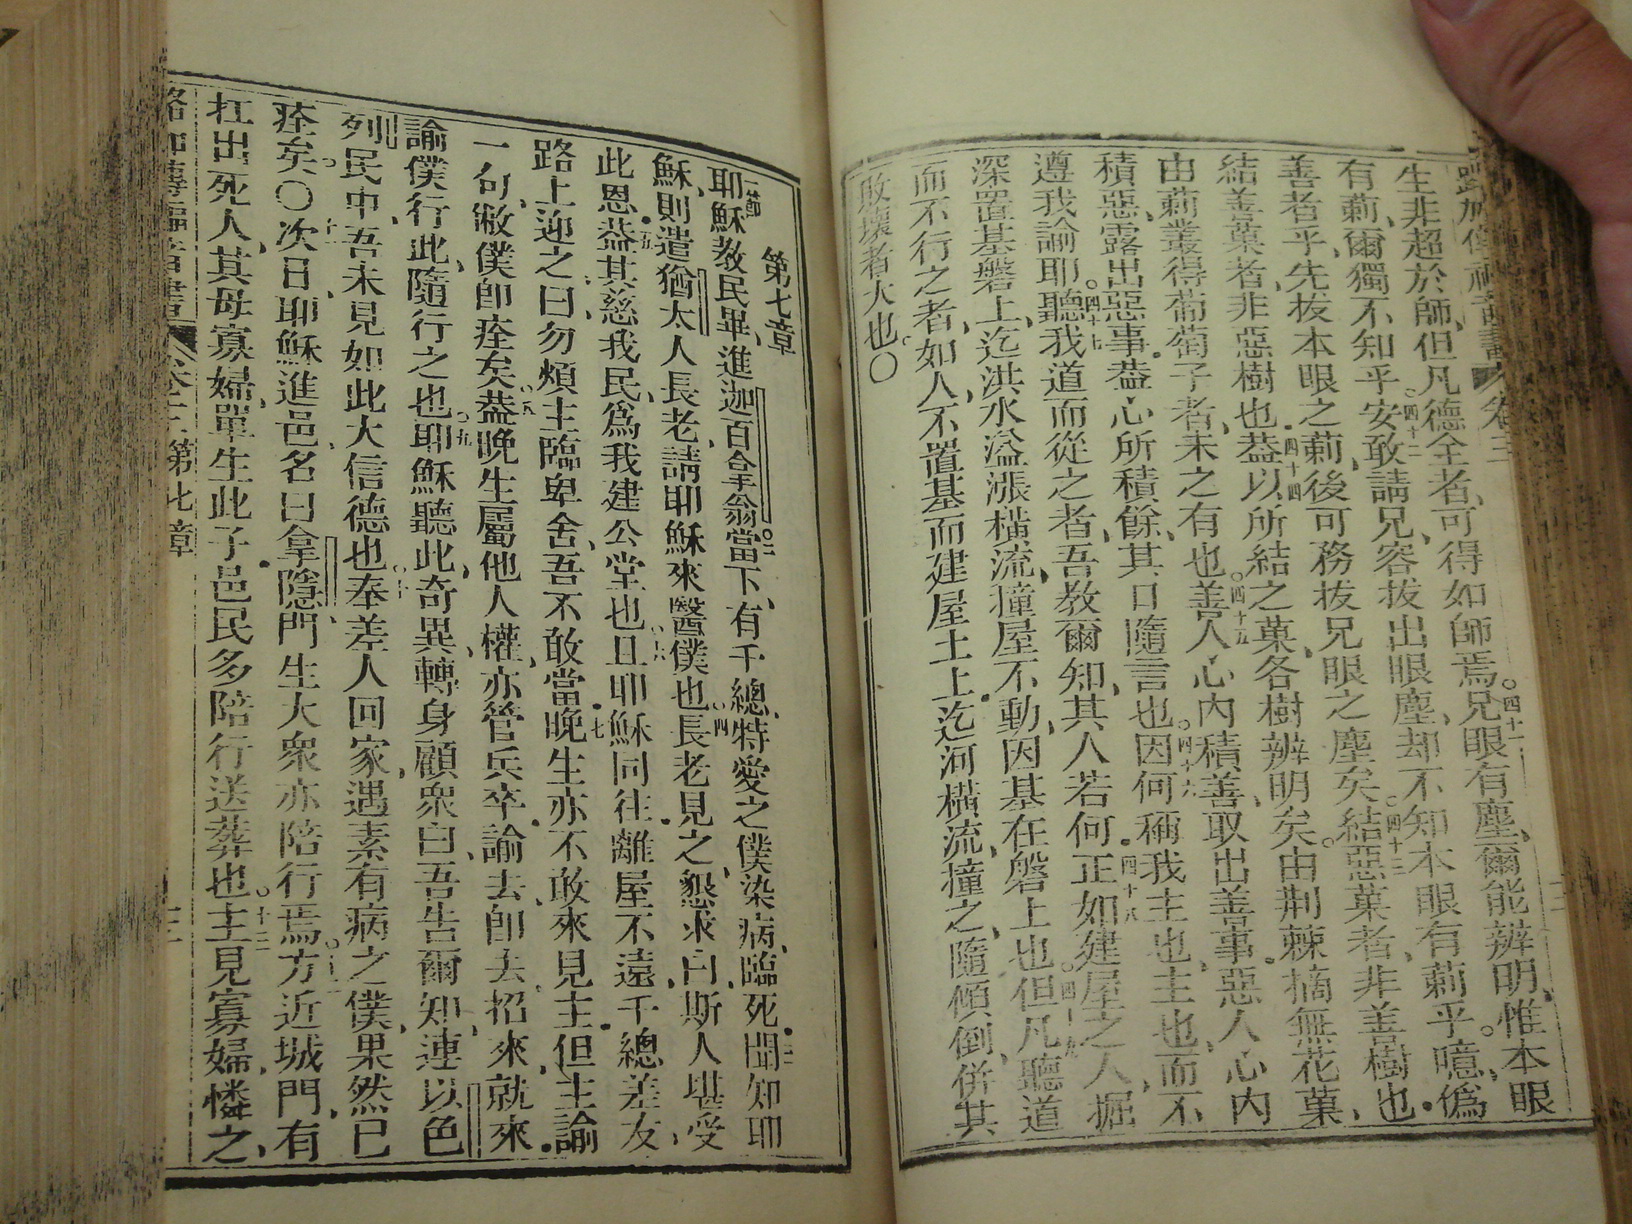 路加傳福音書 卷三
生非超於師、但凡德全者、可得如師焉。四十一兄眼有塵、爾能辨明、惟本眼
有莿、爾獨不知乎。四十二安敢請兄、容拔出眼塵、却不知本眼有莿乎。噫、僞
善者乎、先拔本眼之莿、後可務拔兄眼之塵矣。四十三結惡菓者、非善樹也、
結善菓者、非惡樹也。四十四葢以所結之菓、各樹辨明矣。由荆棘摘無花菓、
由莿叢得葡萄子者、未之有也。四十五善人心內積善、取出善事。惡人心內
積惡、露出惡事。葢心所積餘、其口隨言也。四十六因何稱我主也、主也、而不
遵我諭耶。四十七聽我道而從之者、吾教爾知、其人若何。四十八正如建屋之人、掘
深置基磐上、迄洪水溢漲橫流、撞屋不動、因基在磐上也。四十九但凡聽道
而不行之者、如人、不置基而建屋土上、迄河橫流、撞之、隨傾倒、併其
敗壞者大也。〇
第七章
一節耶穌教民畢、進迦百拿翁。二當下、有千總、特愛之僕染病、臨死。三聞知耶
穌、則遣猶太人長老、請耶穌來醫僕也。四長老見之、懇求曰、斯人堪受
此恩。五葢其慈我民、爲我建公堂也。六且耶穌同往、離屋不遠、千總差友、
路上迎之、曰、勿煩主臨卑舍、吾不敢當。七晚生亦不敢來見主、但主諭
一句、敝僕卽痊矣。八葢晚生屬他人權、亦管兵卒、諭去、卽去、招來、就來。
諭僕行此、隨行之也。九耶穌聽此、奇異、轉身顧衆曰、吾告爾知、連以色
列民中、吾未見如此大信德也。十奉差人回家、遇素有病之僕、果然已
痊矣。〇十一次日、耶穌進邑、名曰拿隱、門生大衆亦陪行焉。十二方近城門、有
扛出死人、其母寡婦、單生此子。邑民多陪行送葬也。十三主見寡婦、憐之、
路加傳福音書 卷三 第七章 三